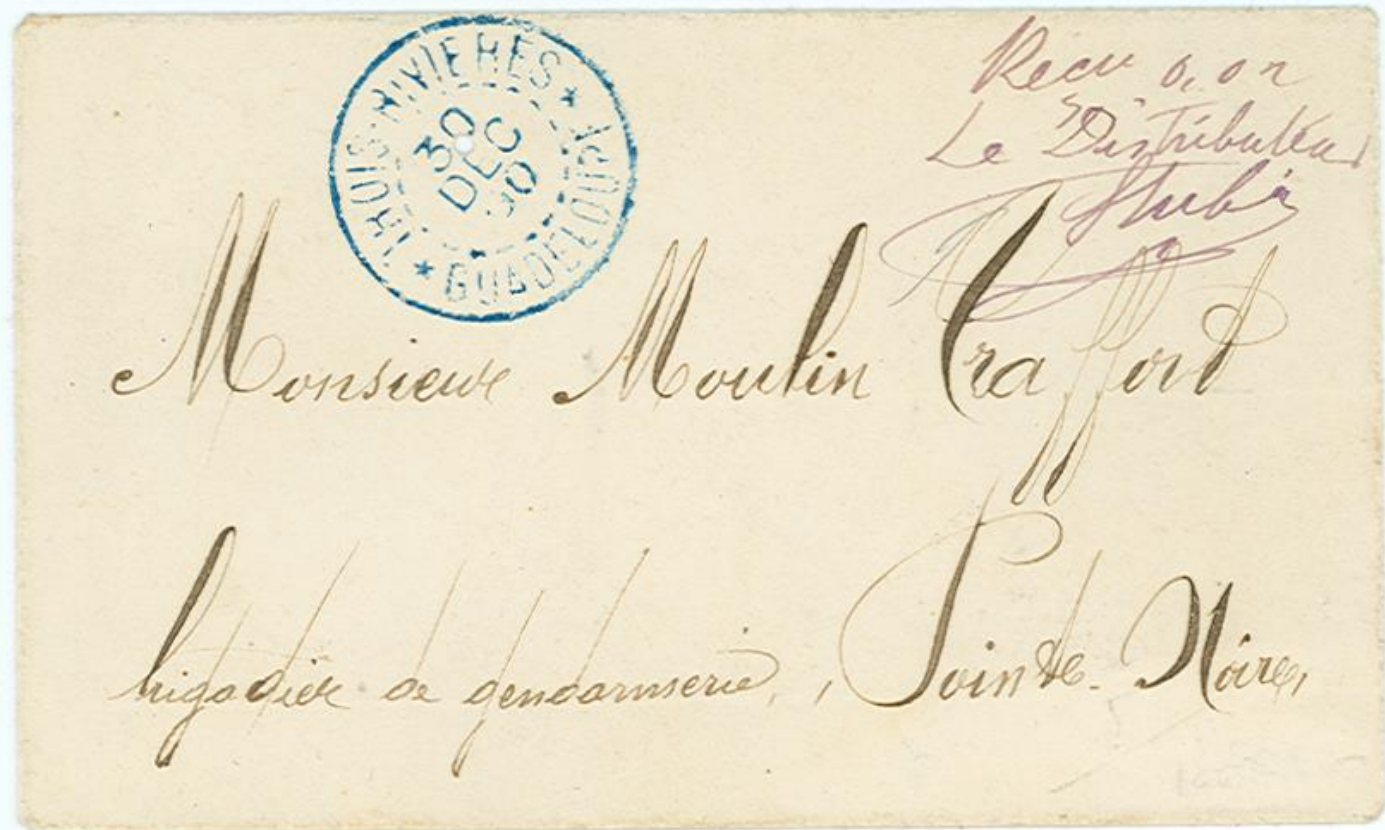 TROIS-RIVIERES * GUADELOUPE *
30
DEC
90
Recu 0,02
Le Distributeur
Monsieur Moulin Trafford
brigadier de gendarmerie, Pointe-Noire,